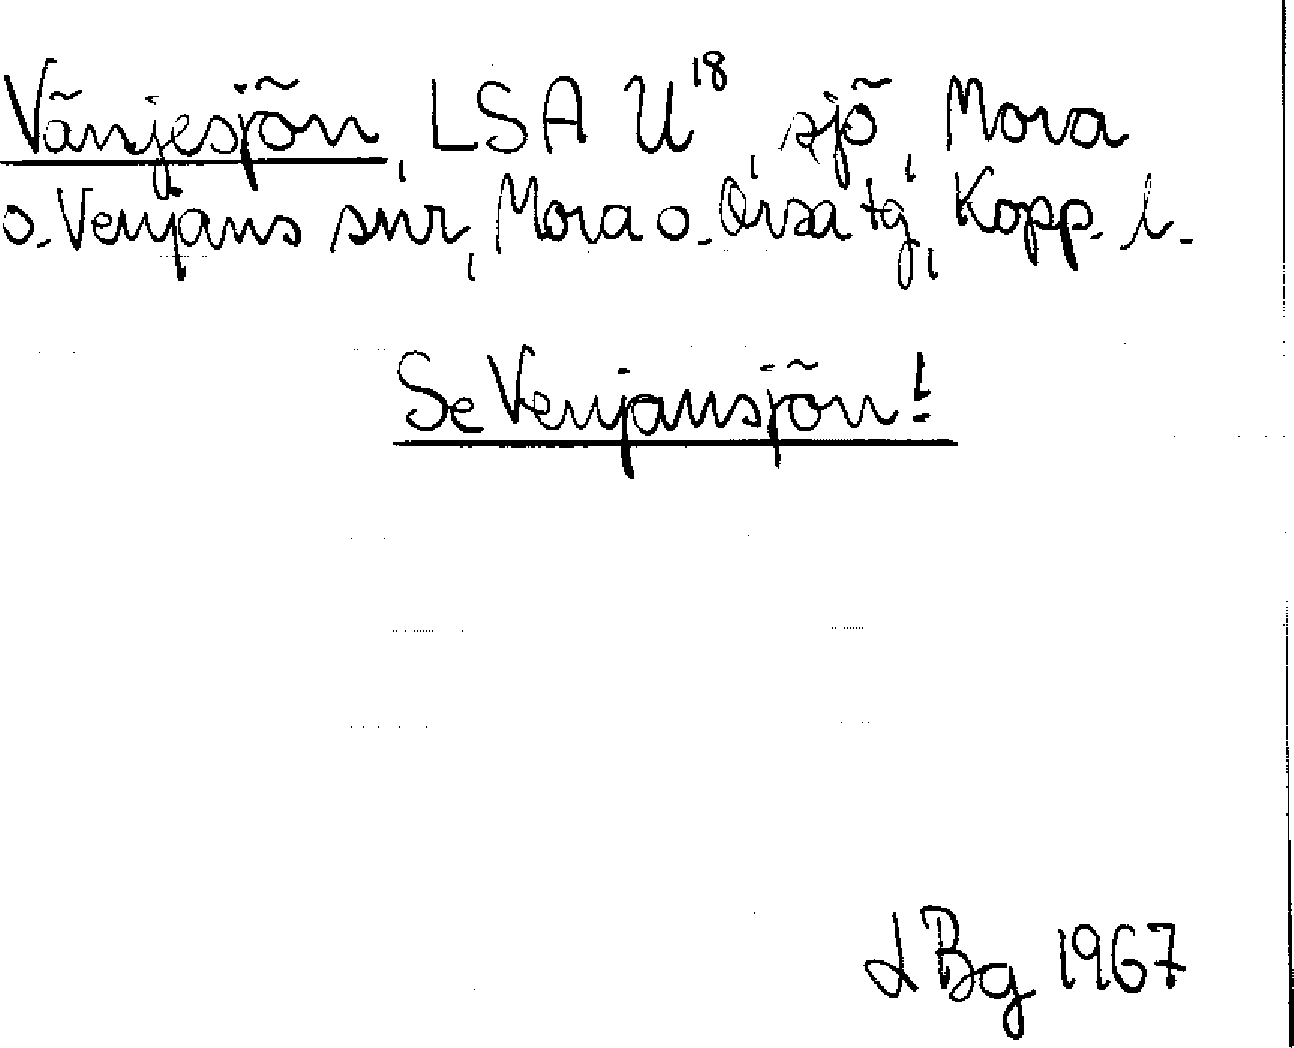 Vänjesjön, LSA U18, sjö, Mora
o. Venjans snr, Mora o. Orsa tg, Kopp. l.
Se Venjansjön!
LBg 1967